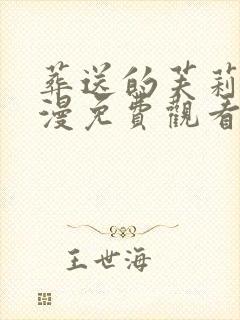 葬送的芙莉
漫免費觀看
王世海